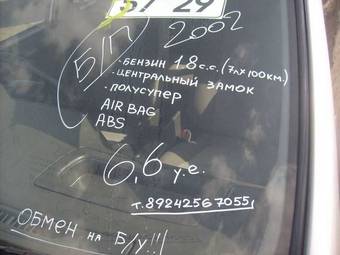 57 29
Б/П 2002
- БЕНЗИН 1.8 с.с. (7лх100км.)
- ЦЕНТРАЛЬНЫЙ ЗАМОК
- ПОЛУСУПЕР
AIR BAG
ABS
6,6 у.е.
т. 89242567055
ОБМЕН на Б/у!!